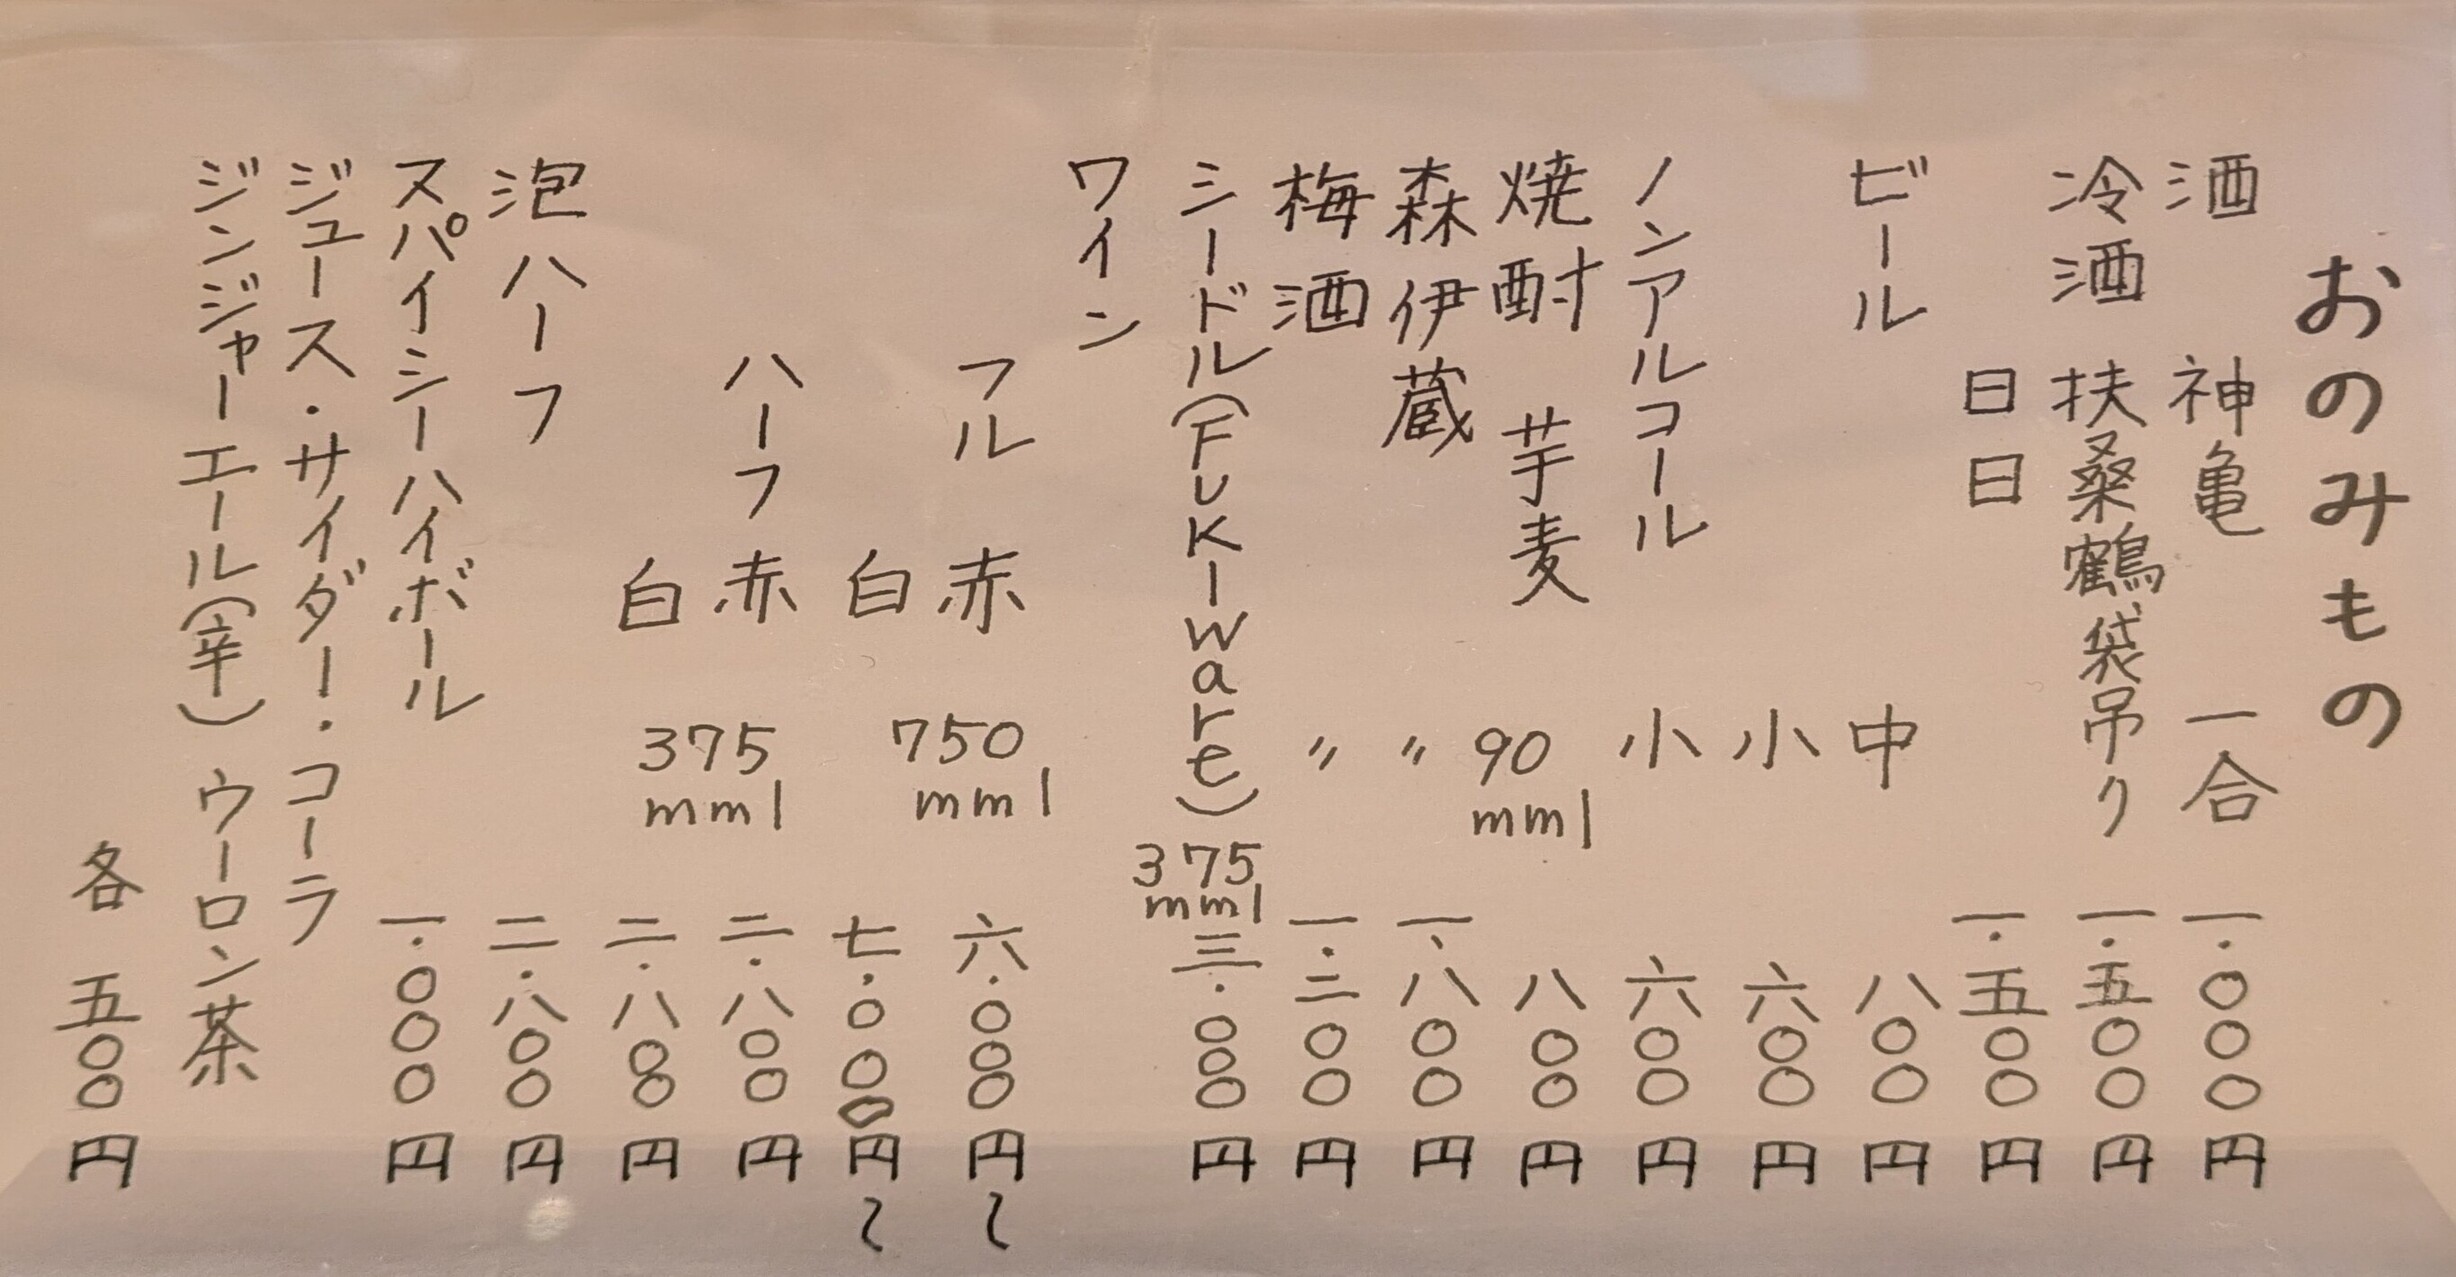 おのみもの
酒 神亀 一合 一.〇〇〇円
冷酒 扶桑鶴袋吊り 一.五〇〇円
日日 一.五〇〇円
ビール 中 八〇〇円
小 六〇〇円
ノンアルコール 小 六〇〇円
焼酎 芋麦 90mml 八〇〇円
森伊蔵 〃 一、八〇〇円
梅酒 〃 一.二〇〇円
シードル(FUKIWare) 375mml 三.〇〇〇円
ワイン
フル 赤 750mml 六.〇〇〇円〜
白 七.〇〇〇円〜
ハーフ 赤 375mml 二.八〇〇円
白 二.八〇〇円
泡ハーフ 二.八〇〇円
スパイシーハイボール 一.〇〇〇円
ジュース・サイダー・コーラ
ジンジャーエール(辛) ウーロン茶
各 五〇〇円